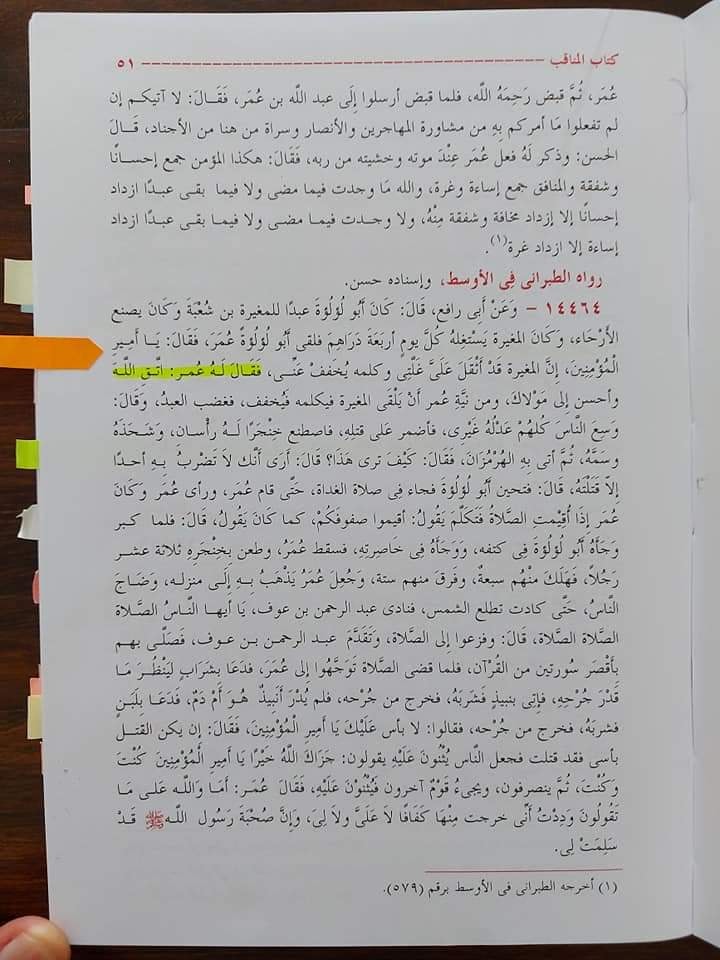 كتاب المناقب ٥١
عُمَر، ثُمَّ قبض رَحِمَهُ اللّه، فلما قبض أرسلوا إِلَى عبد اللّه بن عُمَر، فَقَالَ: لا آتيكم إن
لم تفعلوا مَا أمركم بِهِ من مشاورة المهاجرين والأنصار وسراة من هنا من الأجناد، قَالَ
الحسن: وذكر لَهُ فعل عُمَر عِنْدَ موته وخشيته من ربه، فَقَالَ: هكذا المؤمن جمع إحسانًا
وشفقة والمنافق جمع إساءة وغرة، والله مَا وجدت فيما مضى ولا فيما بقى عبدًا ازداد
إحسانًا إلا إزداد مخافة وشفقة مِنْهُ، ولا وجدت فيما مضى ولا فيما بقى عبدًا ازداد
إساءة إلا ازداد غرة(١).
رواه الطبرانى فِى الأوسط، وإسناده حسن.
١٤٤٦٤ – وَعَنْ أبى رافع، قَالَ: كَانَ أَبُو لُؤْلُؤَة عبدًا للمغيرة بن شُعْبَة وَكَانَ يصنع
الأَرْحَاء، وَكَانَ المغيرة يَسْتَغِلهُ كُلَّ يوم أربَعَةَ دَرَاهِمَ فلقى أَبُو لُؤْلُؤَةً عُمَرَ، فَقَالَ: يَا أمِير
الْمُؤْمِنِينَ، إنَّ المغيرة قَدْ أثْقَلَ عَلَىَّ غَلَّتِى وكلمه يُخَفف عَنِّى، فَقَالَ لَهُ عُمَر: اتَّق اللَّهَ
وأحسن إلى مَوْلاكَ، ومن نيَّةِ عُمر أنْ يَلْقَى المغيرة فيكلمه فيُخفف، فغضب العبدُ، وَقَالَ:
وَسِعَ النَّاسَ كُلهُمْ عَدْلُهُ غَيْرِى، فأضمر عَلى قتلهِ، فاصطنع خِنْجَرًا لَهُ رأْسان، وشَحَذَهُ
وسَمَّهُ، ثُمَّ أتى بِهِ الهُرْمُزَانَ، فَقَالَ: كَيْفَ ترى هَذَا؟ قَالَ: أرَى أنَّك لاَ تَضْرِبُ بِهِ أحدًا
إلاّ قَتَلْتَهُ، قَالَ: فتحين أَبُو لُؤْلُؤَة فجاء فِى صلاة الغداة، حتَّى قام عُمَر، ورأى عُمَرَ وَكَانَ
عُمَر إذَا أُقِيْمتِ الصَّلاةُ فتَكَلَّمَ يَقُولُ: أقيموا صفوفَكُمْ، كما كَانَ يَقُولُ، قَالَ: فلما كبر
وَجَأَهُ أَبُو لُؤْلُؤَة فِى كتفه، وَوَجَأَهُ فِى خَاصِرتِه، فسقط عُمَرُ، وطعن بِخِنْجَرِهِ ثلاثة عشر
رَجُلاً، فَهَلَكَ مِنْهُم سبعةٌ، وفَرقَ منهم ستة، وجُعِلَ عُمَرُ يَذْهَبُ بِهِ إِلَى منزلِه، وَصَاحَ
النَّاسُ، حَتَّى كادت تطلع الشمس، فنادى عبد الرحمن بن عوف، يَا أيها النَّاسُ الصَّلاة
الصَّلاة الصَّلاة، قَالَ: وفزعوا إلى الصَّلاة، وَتَقَدَّمَ عبد الرحمن بن عوف، فَصَلَّى بهم
بأقْصَر سُورتين من القُرْآن، فلما قضى الصَّلاة تَوجَّهُوا إلى عُمَرَ، فَدَعَا بِشَرَابٍ لينْظُرَ مَا
قَدْرَ جُرْحِهِ، فأتِى بنبيذٍ فَشَرِبَهُ، فخرج من جُرْحِه، فلم يُدْرَ أنَبيذٌ هُوَ أَمْ دَمٌ، فَدَعَا بِلَبَنٍ
فشربَهُ، فخرج من جُرْحه، فقالوا: لا بأس عَلَيْكَ يَا أمِير الْمُؤْمِنِينَ، فَقَالَ: إن يكن القتل
بأسى فقد قتلت فجعل النَّاس يُثْنُونَ عَلَيْهِ يقولون: جَزَاكَ اللّهُ خَيْرًا يَا أمِيرِ الْمُؤْمِنِينَ كُنْتَ
وَكُنْتَ، ثُمَّ ينصرفون، ويجىءُ قَوْمٌ آخرون فَيُثْنُوْنَ عَلَيْهِ، فَقَالَ عُمَر: أمَا وَاللَّه عَلَى مَا
تَقُولُونَ وَدِدْتُ أنَّى خرجت مِنْهَا كَفَافًا لاَ عَلَىَّ ولاَ لِىَ، وَإنَّ صُحْبَة رَسُول اللّهِ ﷺ قَدْ
سَلِمَتْ لِى.
(١) أخرجه الطبرانى فى الأوسط برقم (٥٧٩).